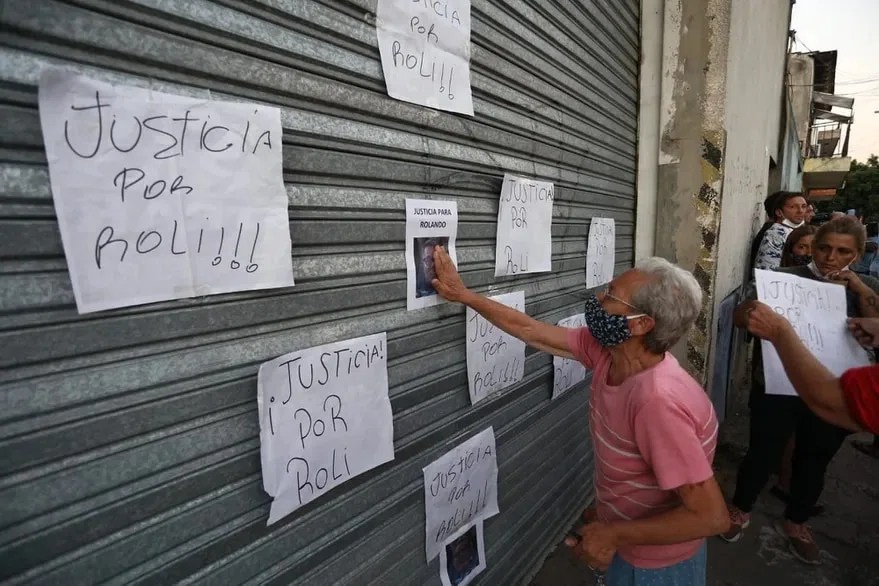 JUSTICIA
POR
ROLI!!!
JUSTICIA
POR
ROLI!!!
JUSTICIA PARA
ROLANDO
JUSTICIA
POR
ROLI
JUSTICIA
POR
¡JUSTICIA!
POR
ROLI
JUSTICIA
POR
ROLI!!!
JUSTICIA
POR
ROLI!!!